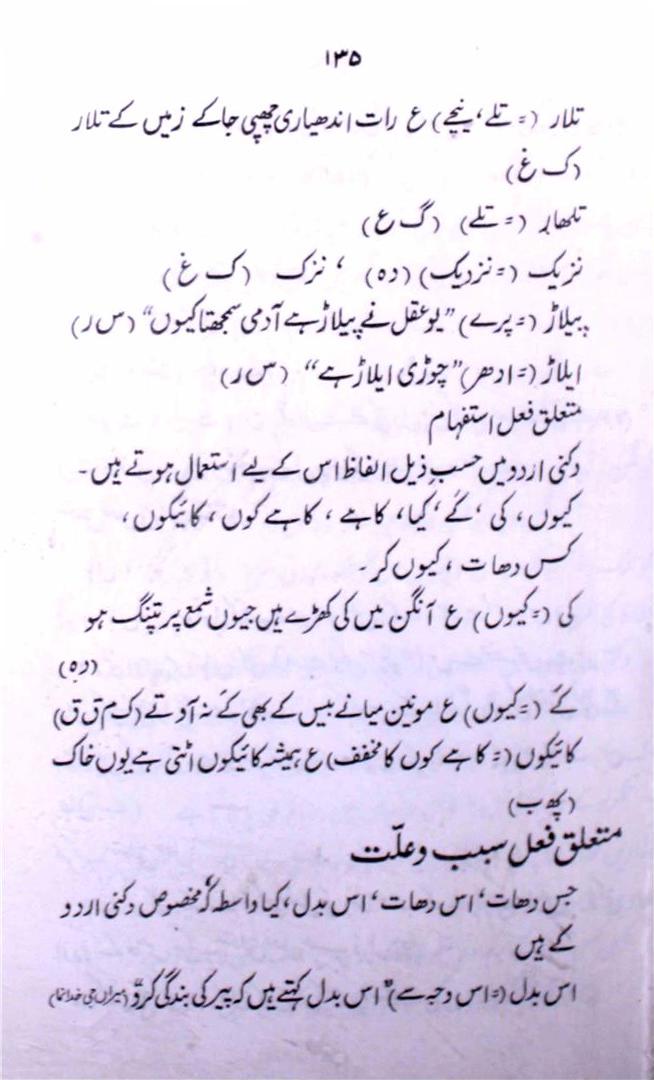 ۱۳۵
تلار (= تلے، نیچے) ع رات اندھیاری چھپی جا کے زمیں کے تلار
(ک غ)
تلھار (= تلے) (گ ع)
نزیک (= نزدیک) (دہ) ، نزک (ک غ)
پیلاڑ (= پرے) ”یو عقل نے پیلاڑ ہے آدمی سمجھتا کیوں“ (س ر)
ایلاڑ (= ادھر) ”چوڑی ایلاڑ ہے“ (س ر)
متعلق فعل استفہام
دکنی اردو میں حسب ذیل الفاظ اس کے لیے استعمال ہوتے ہیں۔
کیوں، کی، کے، کیا، کاہے، کاہے کوں، کائیکوں،
کس دھات، کیوں کر۔
کی (= کیوں) ع آنگن میں کی کھڑے ہیں جیوں شمع پر پتنگ ہو
(دہ)
کے (= کیوں) ع مونین میانے بیس کے بھی کے نہ آوتے (ک م ق ق)
کائیکوں (= کاہے کوں کا مخفف) ع ہمیشہ کائیکوں اٹتی ہے یوں خاک
(پھ ب)
متعلق فعل سبب و علّت
جس دھات، اس دھات، اس بدل، کیا واسطہ کہ مخصوص دکنی اردو
کے ہیں
اس بدل (= اس وجہ سے) ”اس بدل کہتے ہیں کہ پیر کی بندگی کرو“ (میراں جی خدا نما)